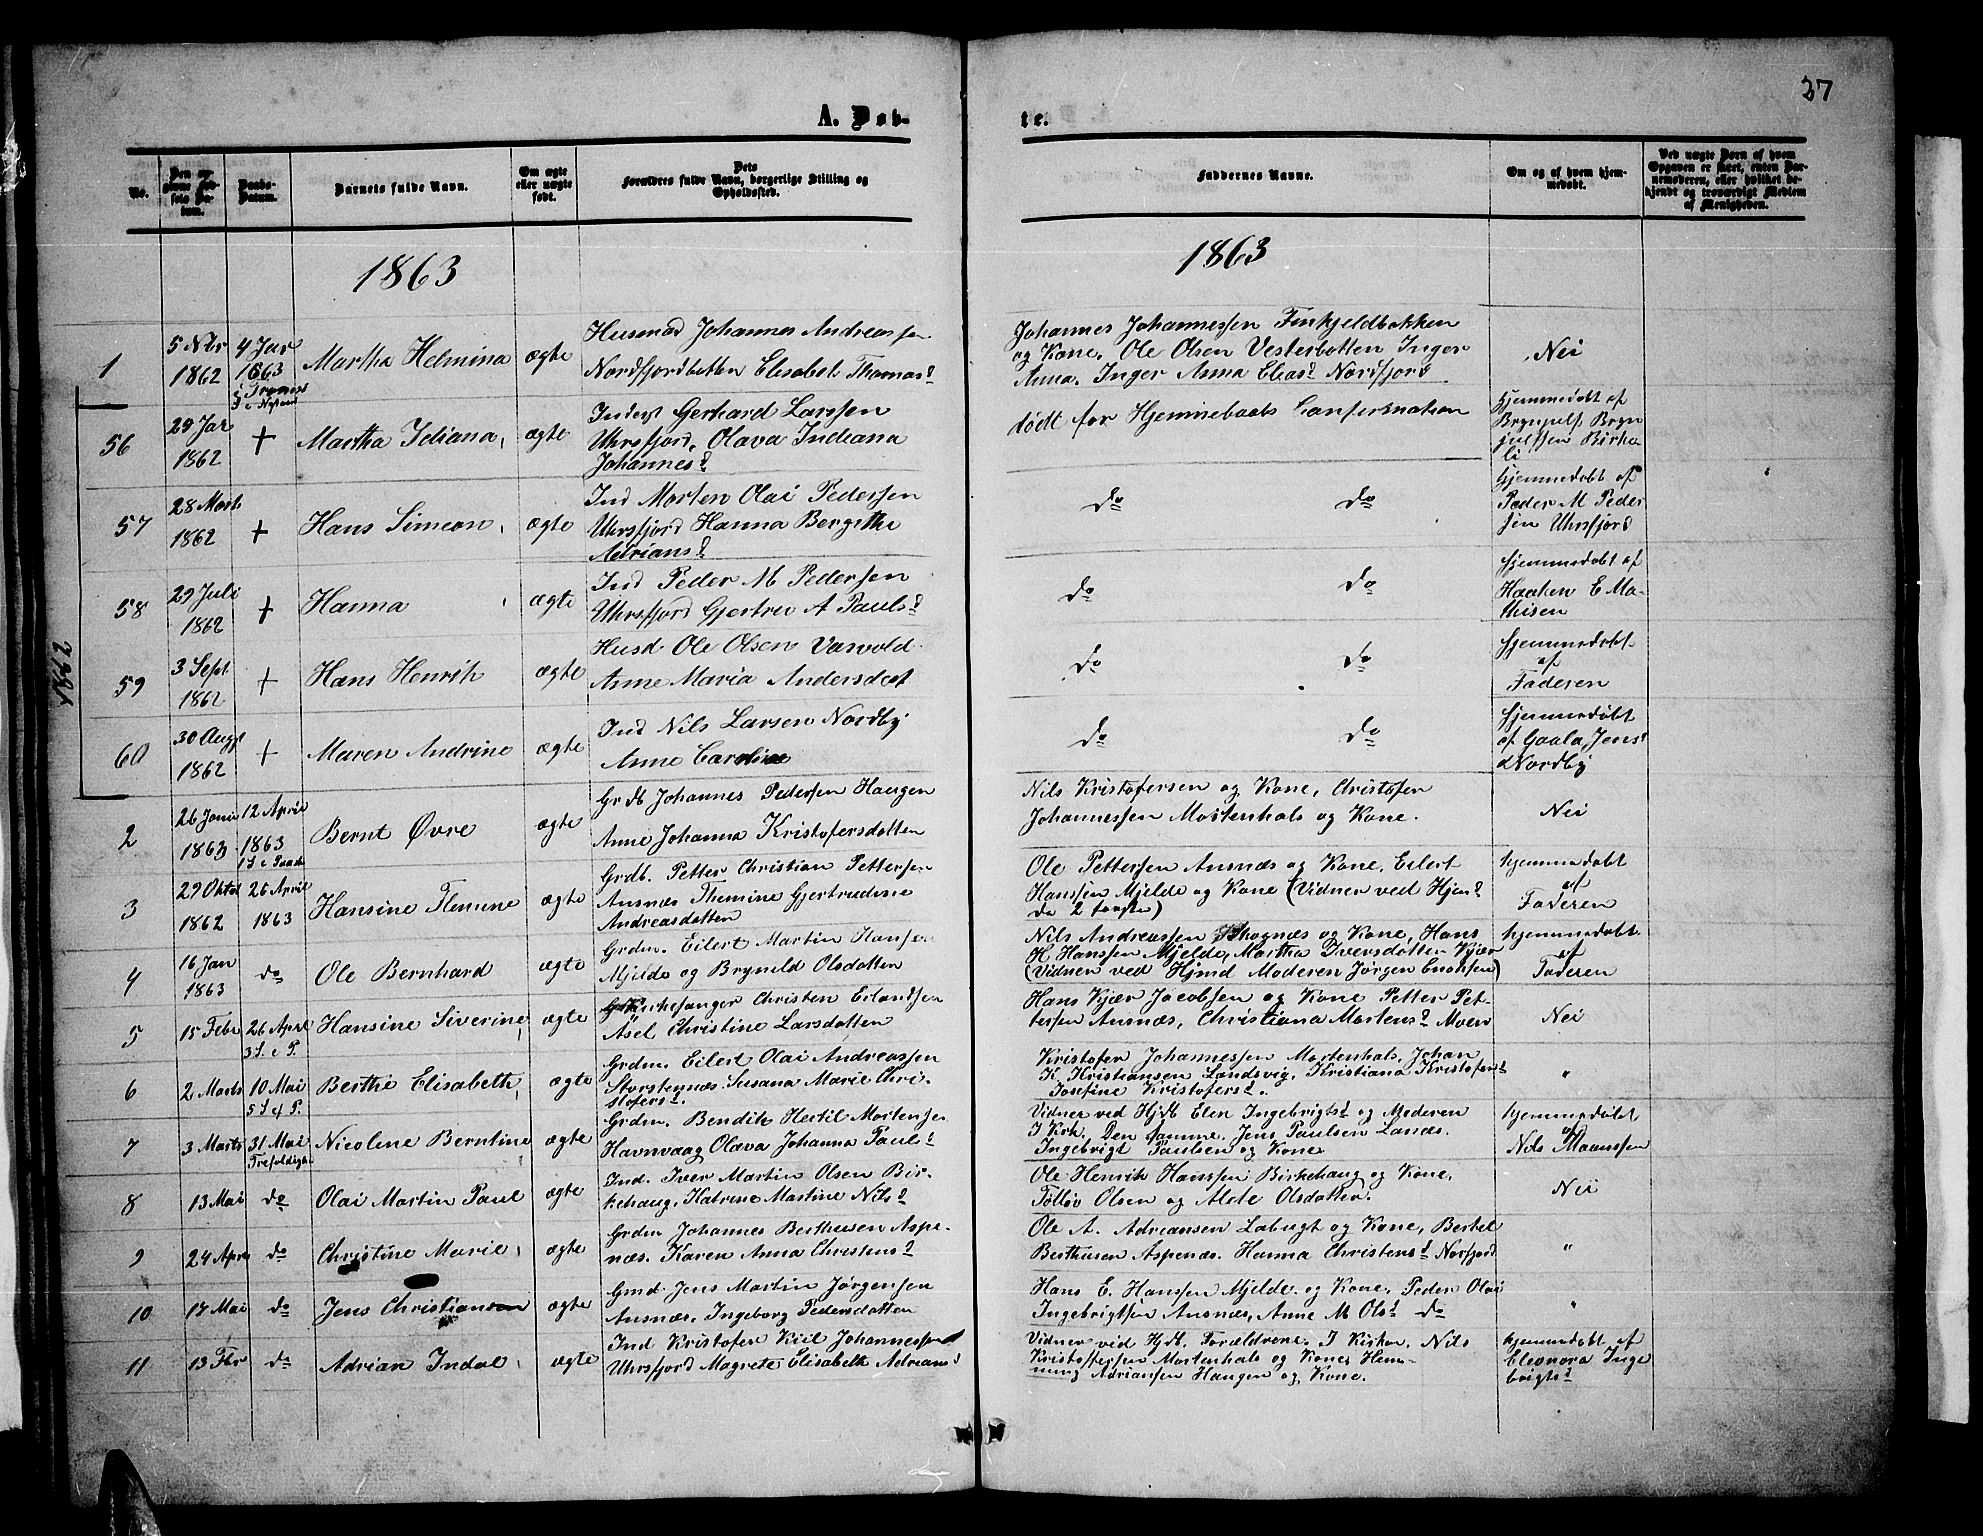 27
A. Døb-
te.
No.
Den op-
givne Fød-
sels Da-
tum.
Daabs-
Datum.
Barnets fulde Navn.
Om ægte
eller uægte
født.
Dets
Forældres fulde Navn, borgerlige Stilling og
Opholdssted.
Faddernes Navne.
Om og af hvem hjem-
medøbt.
Ved uægte Børn af hvem
Opgaven er skeet, enten Bar-
nemoderen, eller hvilket be-
kjendt og troværdigt Medlem
af Menigheden.
1863
1863
1862
1
5 Nbr
1862
4 Jar
1863
i Tranø
Martha Helmina
ægte
Husmd Johannes Andreassen
Nordfjordbotten Elisabet Thomasd
Johannes Johannessen Finkjeldbakken
og Kone. Ole Olsen Vesterbotten Inger
Anna. Inger Anna Eliasd Nordfjord
Nei
56
29 Jar
1862
+
Martha Idiana,
ægte
Inderst Gerhard Larssen
Uhrsfjord, Olava Indiana
Johannesd
dødt før Hjemmedaabs Confirmation
hjemmedøbt af
Brynjulf Bryn
julfssen Birke
li
57
28 Marts
1862
+
Hans Simeon
ægte
Ind Morten Olai Pedersen
Uhrsfjord Hanna Bergithe
Adriansd
do do
hjemmedøbt af
Peder M Peder
sen Uhrsfjord
58
29 Juli
1862
+
Hanna
ægte
Ind Peder M Pedersen
Uhrsfjord Gjertru A Paulsd
do do
hjemmedøbt af
Haaken E Ma-
thisen
59
3 Sept
1862
+
Hans Henrik
ægte
Husd Ole Olsen Vasvold
Anne Maria Andersdat
do do
hjemmedøbt
af
Faderen
60
30 Augst
1862
+
Maren Andrine
ægte
Ind Nils Larsen Nordby
Anne Caroline
do do
hjemmedøbt
af Gaala Jensd
Nordby
2
26 Janu
1863
12 April
1863
Bernt Øvre
ægte
Grdb Johannes Pedersen Haugen
Anne Johanna Kristofersdatten
Nils Kristofersen og Kone, Christofen
Johannessen Mortenhals og Kone.
Nei
3
29 Oktob
1862
26 April
1863
Hansine Flemine
ægte
Grdb. Petter Christian Pettersen
Ansnæs Themine Gjertrudine
Andreasdatten
Ole Pettersen Ansnæs og Kone, Eilert
Hanssen Mjelde og Kone (Vidner ved Hjemd
de 2 første)
hjemmedøbt
af
Faderen
4
16 Jan
1863
do
Ole Bernhard
ægte
Grdm. Eilert Martin Hansen
Mjelde og Brynild Olsdatten
Nils Andreassen Skognæs og Kone, Hans
H Hanssen Mjelde, Martha Iversdatten Kjær
(Vidner ved Hjmd Moderen Jørgen Enoksen)
hjemmedøbt
af
Faderen
5
15 Febr
26 April
3 S. e P.
Hansine Siverine
ægte
Kirkesanger Christen Erlandsen
Asel Christine Larsdatten
Hans Kjær Jacobsen og Kone Petter Pet-
tersen Ansnæs, Christiana Martensd Moen
Nei
6
2 Marts
10 Mai
5 S. e P.
Berthe Elisabeth
ægte
Grdm. Eilert Olai Andreassen
Storstennæs. Susana Marie Chri-
stofersd.
Kristofer Johannessen Mortenhals, Johan
K. Kristiansen Sandsvig, Kristiana Kristofersd
Josefine Kristofersd.
"
7
3 Marts
31 Mai
Trefoldigh
Nicoline Berntine
ægte
Grdm. Bendik Hertil Mortensen
Havnvaag Olava Johanna Paulsd
Vidner ved Hjdb Elen Ingebrigtsd og Moderen
I Krk. Den samme. Jens Paulsen Lanæs.
Ingebrigt Paulsen og Kone
hjemmedøbt
af
Nils Maanssen
8
13 Mai
do
Olai Martin Paul
ægte
Ind. Iver Martin Olsen Bir-
kehaug, Katrine Martine Nilsd
Ole Henrik Hanssen Birkehaug og Kone.
Tølløv Olsen og Alde Olsdatten.
Nei
9
24 Apr
do
Christine Marie
ægte
Grdm Johannes Berthusen Aspe-
næs. Karen Anna Christensd
Ole A. Adriansen Labugt og Kone, Bertel
Berthusen Aspenæs. Hanna Christensd Norfjord
"
10
17 Mai
do
Jens Christiansen
ægte
Gmd. Jens Martin Jørgensen
Ansnæs. Ingeborg Pedersdatten
Hans E. Hanssen Mjelde og Kone. Peder Olai
Ingebrigtsen Ansnæs, Anne M Olsd do
"
11
13 Fbr
do
Adrian Indal
ægte
Ind Kristofer Kiil Johannessen
Uhrsfjord Magrete Elisabeth Adriansd
Vidner ved Hjdb. Forældrene. I Kirken. Nils
Kristoffersen Mortenhals og Kone, Hem-
ming Adriansen Haugen og Kone.
hjemmedøbt af
Eleonora Inge
brigtsd